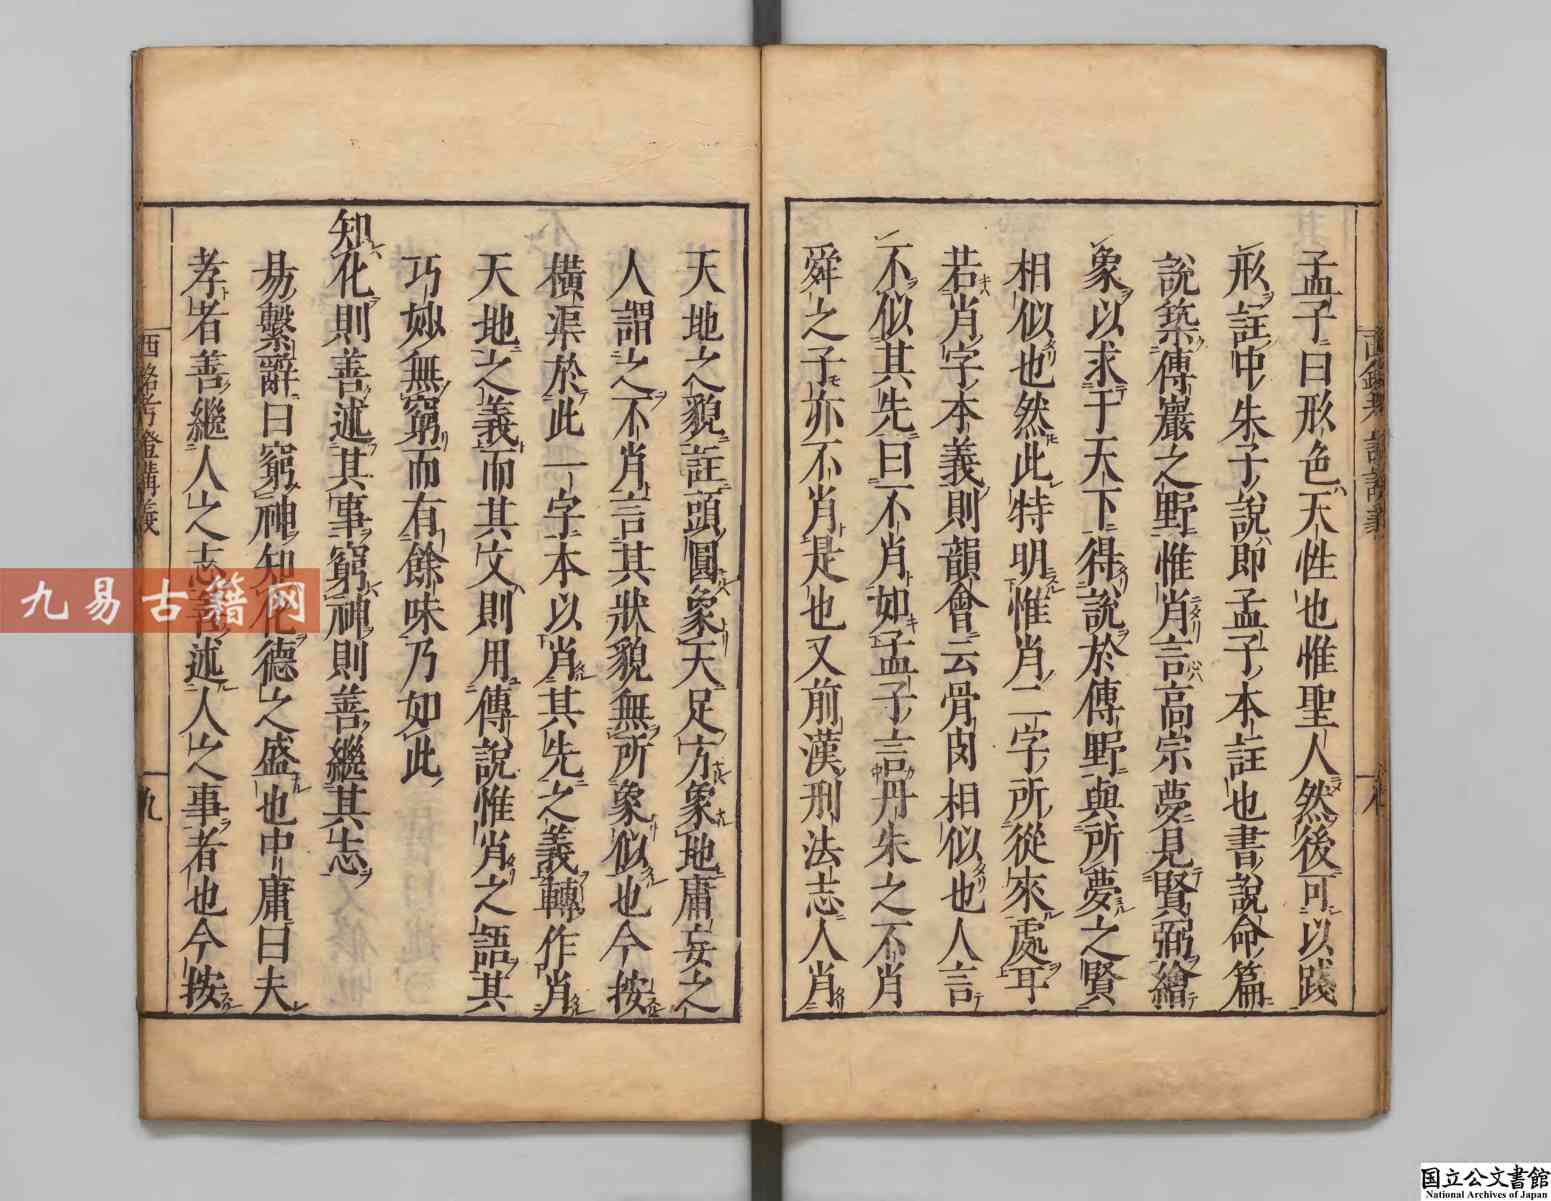 孟子曰形色天性也惟聖人然後可以踐
形註中朱子說即孟子本註也書說命篇
說築傅巖之野惟肖言高宗夢見賢弼繪
象以求于天下得說於傅野與所夢之賢
相似也然此特明惟肖二字所從來處耳
若肖字本義則韻會云骨肉相似也人言
不似其先曰不肖如孟子言丹朱之不肖
舜之子亦不肖是也又前漢刑法志人肖
天地之貌註頭圓象天足方象地庸妄之
人謂之不肖言其狀貌無所象似也今按
橫渠於此一字本以肖其先之義轉作肖
天地之義而其文則用傅說惟肖之語其
巧妙無窮而有餘味乃如此
知化則善述其事窮神則善繼其志
易繫辭曰窮神知化德之盛也中庸曰夫
孝者善繼人之志善述人之事者也今按
西銘考證講義
九
九易古籍网
国立公文書館
National Archives of Japan